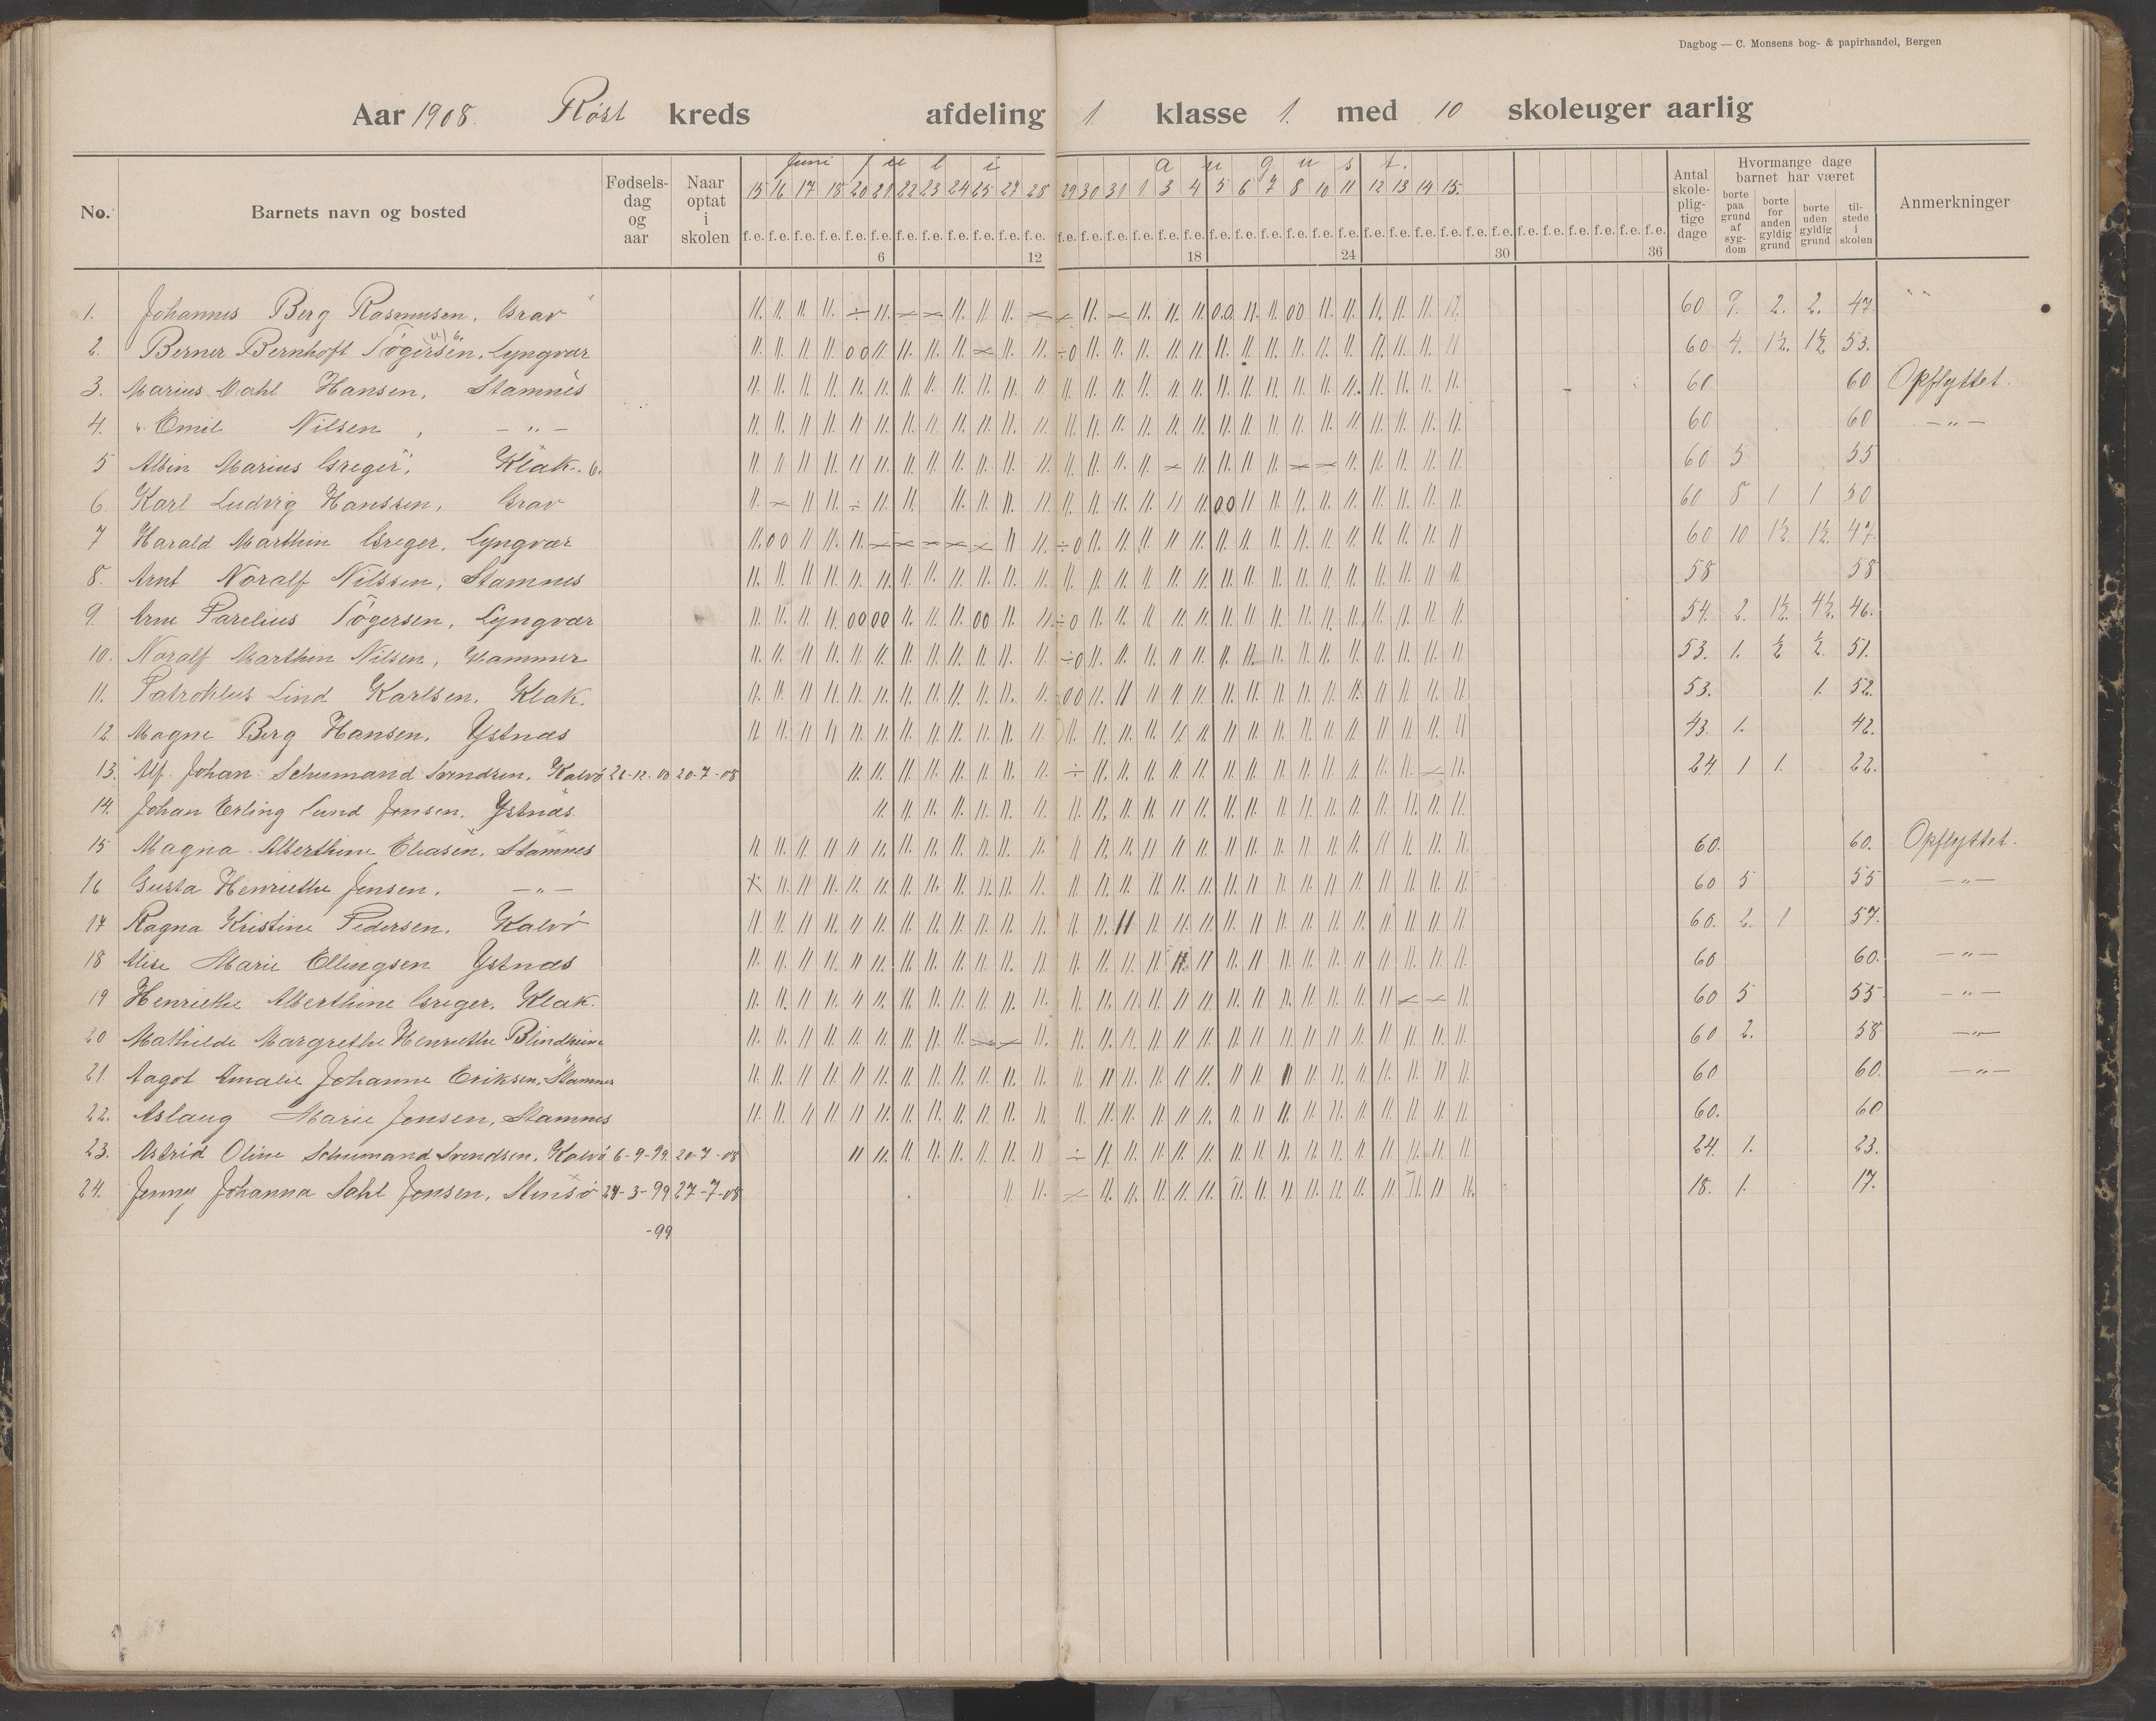 Dagbog — C. Monsens bog- & papirhandel, Bergen
Aar 1908. Røst kreds afdeling 1. klasse 1. med 10 skoleuger aarlig
No. Barnets navn og bosted Fødsels-dag og aar Naar optat i skolen Juni Juli August. Antal skole-plig-tige dage Hvormange dage barnet har været Anmerkninger
borte paa grund af syg-dom borte for anden gyldig grund borte uden gyldig grund til-stede i skolen
15 16 17 18 20 21 22 23 24 25 27 28 29 30 31 1 3 4 5 6 7 8 10 11 12 13 14 15.
f.e. f.e. f.e. f.e. f.e. f.e. f.e. f.e. f.e. f.e. f.e. f.e. f.e. f.e. f.e. f.e. f.e. f.e. f.e. f.e. f.e. f.e. f.e. f.e. f.e. f.e. f.e. f.e. f.e. f.e. f.e. f.e. f.e. f.e. f.e. f.e.
6 12 18 24 30 36
1. Johannes Berg Rasmusen, Grav 60 9. 2. 2. 47
2. Berner Bernhoft Tøgersen, Lyngvær 60 4. 1½. 1½ 53.
3. Marius Dahl Hansen, Stamnes 60 60 Opflyttet.
4. Emil Nilsen, — „ — 60 60 — „ —
5 Albin Marius Greger, Klak. 60 5 55
6 Karl Ludvig Hanssen, Grav 60 8 1 1 50
7 Harald Marthin Greger, Lyngvær 60 10 1½ 1½. 47.
8. Arnt Noralf Nilssen, Stamnes 58 58
9. Arne Parelius Tøgersen, Lyngvær 54. 2. 1½. 4½. 46.
10. Noralf Marthin Nilsen, Hammer 53. 1. ½ ½. 51.
11. Patroklus Lind Karlsen, Klak. 53. 1. 52.
12. Magne Berg Hansen, Ystnæs 43. 1. 42.
13. Alf Johan Schumand Svendsen, Kalvø 20-7-08 24. 1 1. 22.
14. Johan Erling Lund Jensen, Ystnæs.
15 Magna Alberthine Eliasen, Stamnes 60. 60. Opflyttet.
16 Gusta Henriethe Jensen, — „ — 60 5 55 — „ —
17 Ragna Kristine Pedersen, Kalvø 60. 2. 1 57.
18 Alise Marie Ellingsen Ystnæs 60 60. — „ —
19 Henriethe Alberthine Greger, Klak. 60 5 55 — „ —
20 Mathilde Margrethe Henriethe Blindheim 60 2. 58 — „ —
21. Aagot Amalie Johanne Eriksen, Stamnes 60 60. — „ —
22. Aslaug Marie Jensen, Stamnes 60. 60
23. Astrid Oline Schumand Svendsen, Kalvø 6-9-99. 20-7-08 24. 1. 23.
24. Jenny Johanna Dahl Jensen, 24-3-99 27-7-08 18. 1. 17.
-99